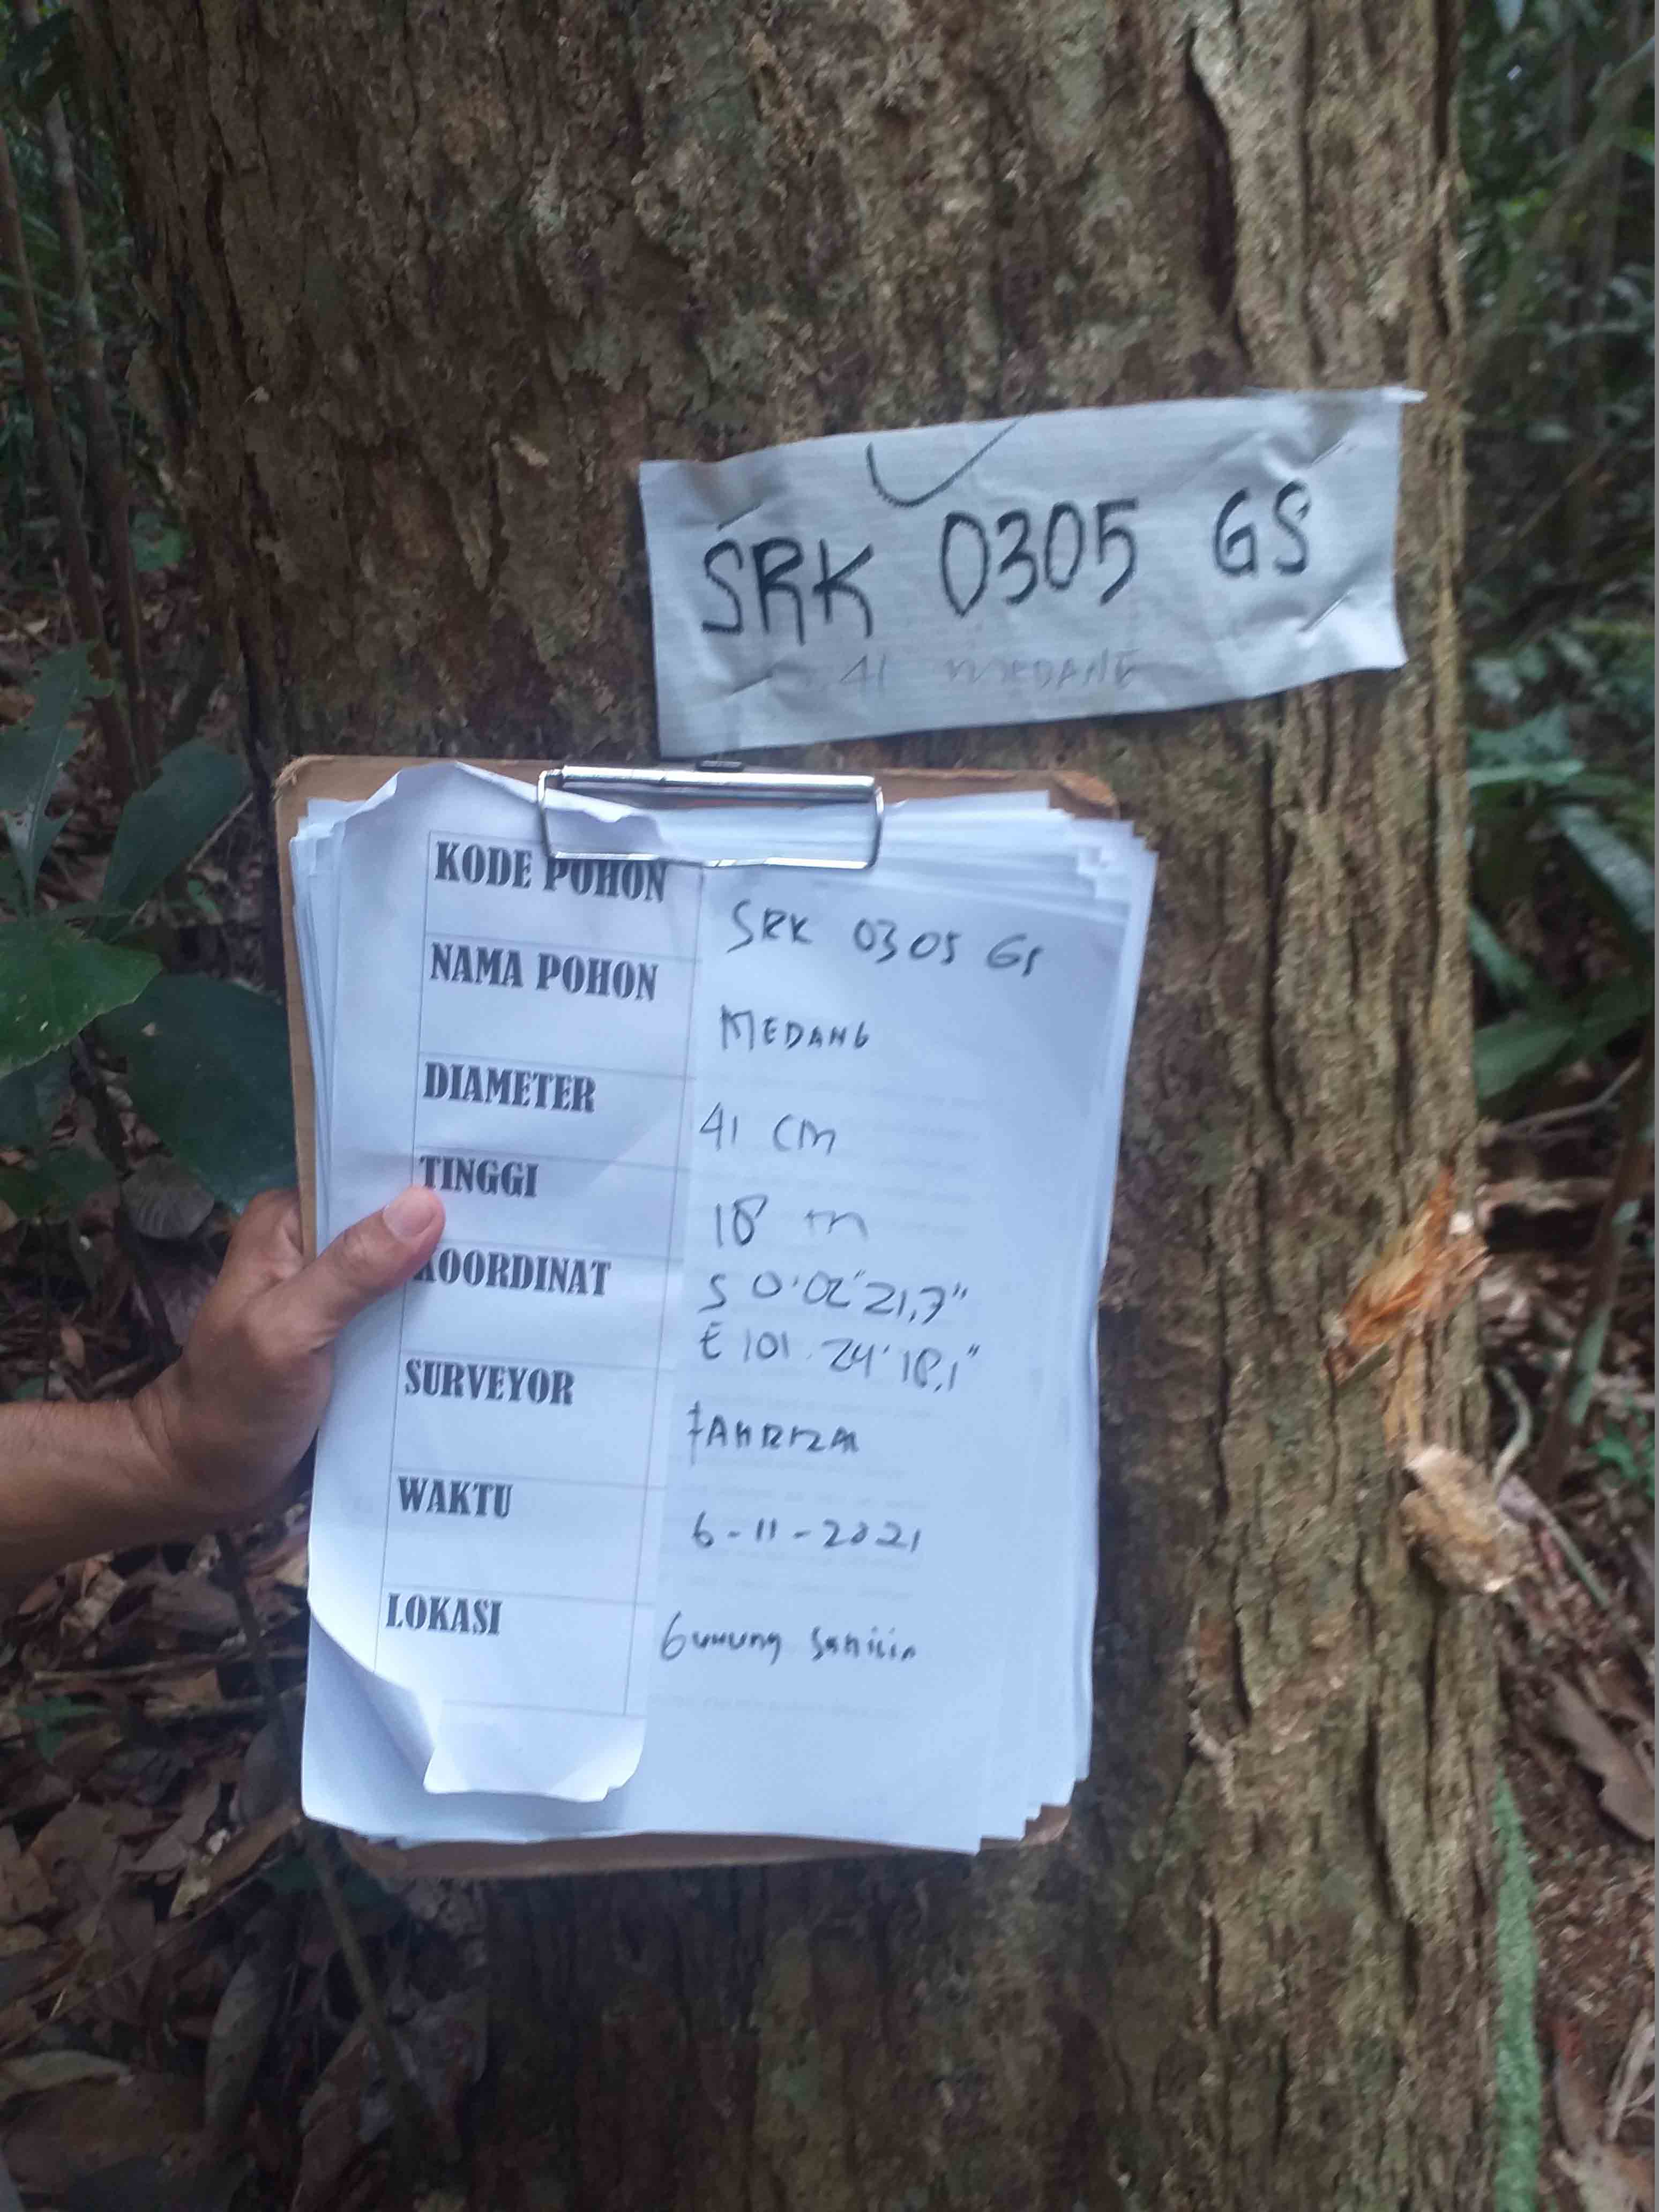 SRK 0305 GS
41 MEDANG
KODE POHON SRK 0305 GS
NAMA POHON MEDANG
DIAMETER 41 cm
TINGGI 18 m
KOORDINAT S 0°02'21,7"
E 101. 24'18,1"
SURVEYOR
WAKTU 6-11-2021
LOKASI Gunung